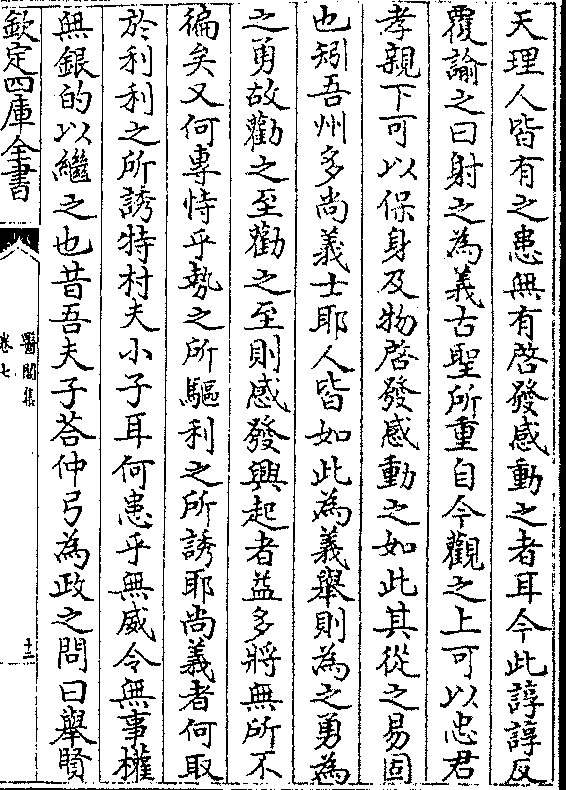 天理人皆有之患無有啓發感動之者耳今此諄諄反
覆諭之曰射之為義古聖所重自今觀之上可以忠君
孝親下可以保身及物啓發感動之如此其從之易固
也矧吾州多尚義士耶人皆如此為義舉則為之勇為
之勇故勸之至勸之至則感發興起者益多將無所不
徧矣又何專恃乎勢之所驅利之所誘耶尚義者何取
於利利之所誘特村夫小子耳何患乎無威令無事權
無銀的以繼之也昔吾夫子荅仲弓為政之問曰舉賢
欽定四庫全書
醫閭集
卷七
十二